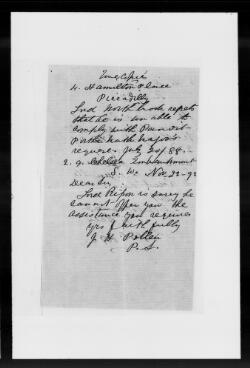 4. Hamilton Place
Piccadilly
Lord Northbrook regrets
that he is unable to
comply with Pundit
request July 20/88.
2. 9 Chelsea Embankment
S. W. Nov. 22-92
Dear Sir
Lord Ripon is sorry he
cannot offer you the
assistance you require
yrs faithfully
P.S.